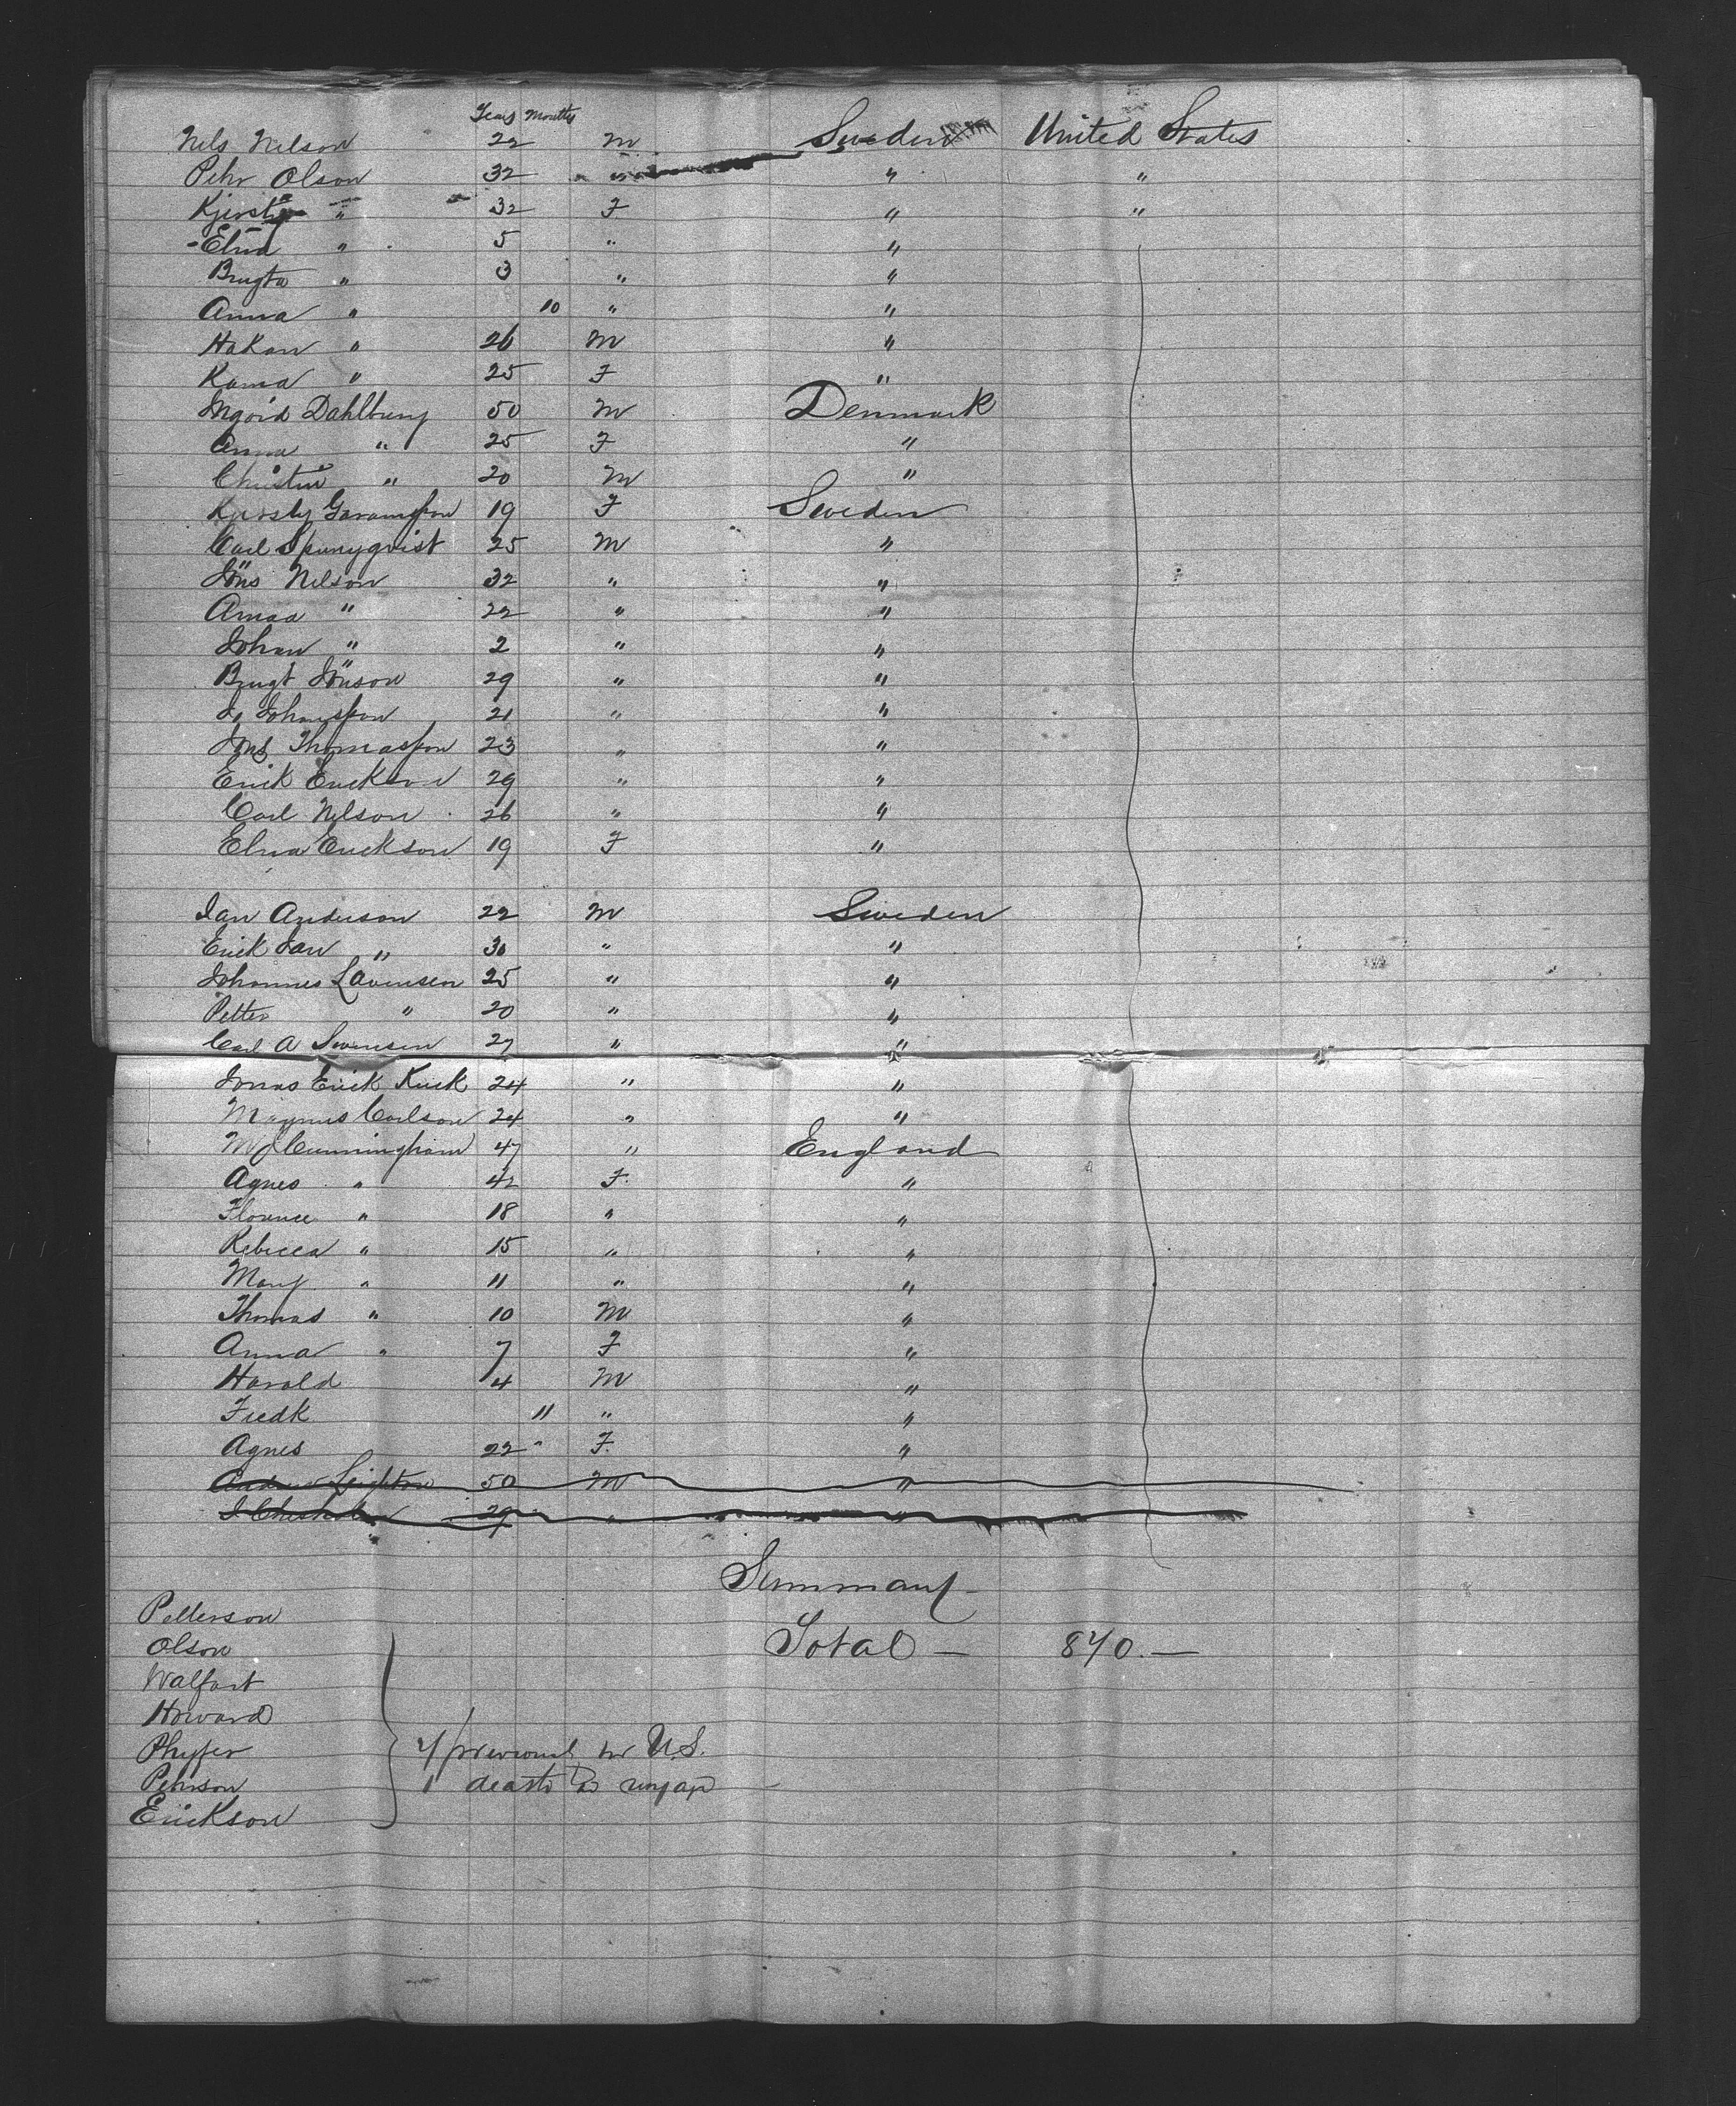 Years Months
Nels Nelson 22 M Sweden United States
Pehr Olson 32 " " "
Kjersty " 32 F " "
Elna " 5 " "
Bengta " 3 " "
Anna " 10 " "
Hakan " 26 M "
Kama " 25 F "
Ingrid Dahlburg 50 M Denmark
Anna " 25 F "
Christin " 20 M "
Kjersty 19 F Sweden
Carl 25 M "
Jöns Nelson 32 " "
Anna " 22 " "
Johan " 2 " "
Bengt Jönson 29 " "
Johansson 21 " "
Jöns Thomasson 23 " "
Erick Erickson 29 " "
Carl Nelson 26 " "
Elna Erickson 19 F "
Jan Anderson 22 M Sweden
Erick Jan " 30 " "
Johannes Lavensen 25 " "
Petter " 20 " "
Carl A Swensen 27 " "
Jonas Erick Kuik 24 " "
Magnus Carlson 24 " "
Cunningham 47 " England
Agnes " 42 F. "
Florence " 18 " "
Rebecca " 15 " "
Mary " 11 " "
Thomas " 10 M "
Anna " 7 F "
Harald 4 M "
Fredk 11 " "
Agnes 22 " F. "
Andrew Leighton 50 M "
29 " "
Summary
Petterson
Olson Total — 840. —
Walfart
Howard
Phyfer U.S.
Pehrson 1 death
Erickson